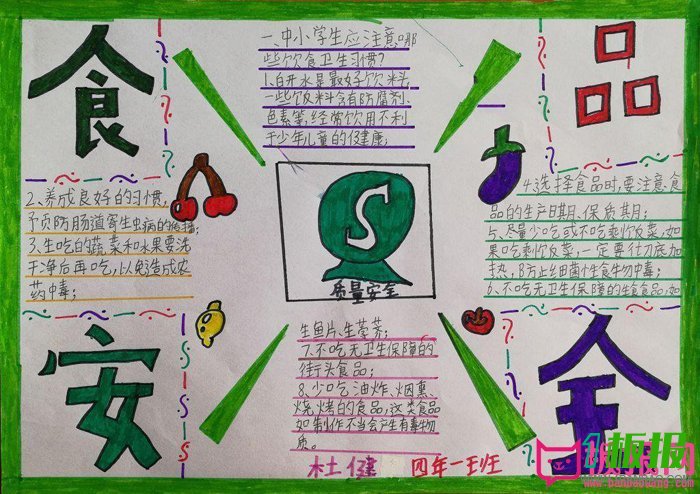 食
品
安
全
一、中小学生应注意哪
些饮食卫生习惯?
1、白开水是最好饮料,
一些饮料含有防腐剂、
色素等,经常饮用不利
于少年儿童的健康;
2、养成良好的习惯,
予页防肠道寄生虫病的传播;
3、生吃的蔬菜和水果要洗
干净后再吃,以免造成农
药中毒;
4、选择食品时,要注意食
品的生产日期、保质期;
5、尽量少吃或不吃剩饭菜,如
果吃剩饭菜,一定要彻底加
热,防止细菌性食物中毒;
6、不吃无卫生保障的生食食品,如
S
质量安全
生鱼片、生荸荠;
7、不吃无卫生保障的
街头食品;
8、少吃油炸、烟熏、
烧烤的食品,这类食品
如制作不当会产生有毒物
质。
杜健 四年一班
板报网